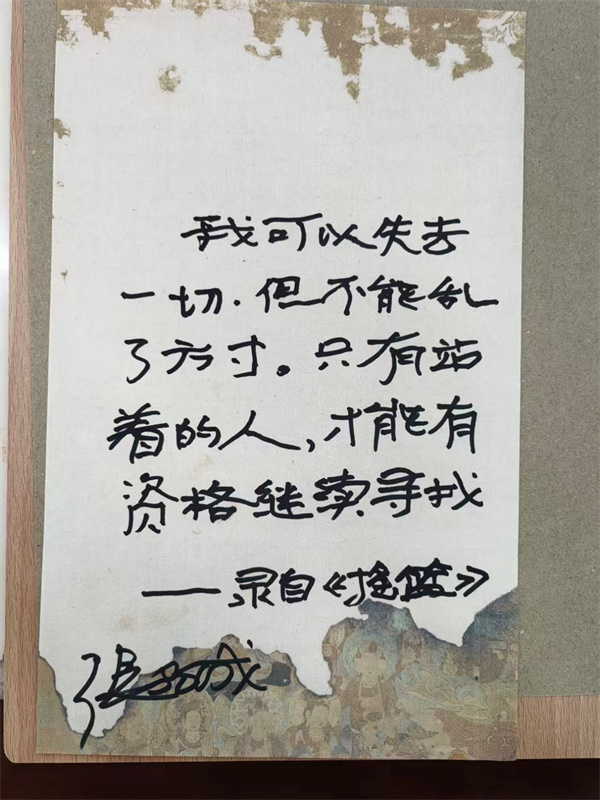 我可以失去
一切.但不能乱
了方寸。只有站
着的人,才能有
资格继续寻找
——录自《摇篮》